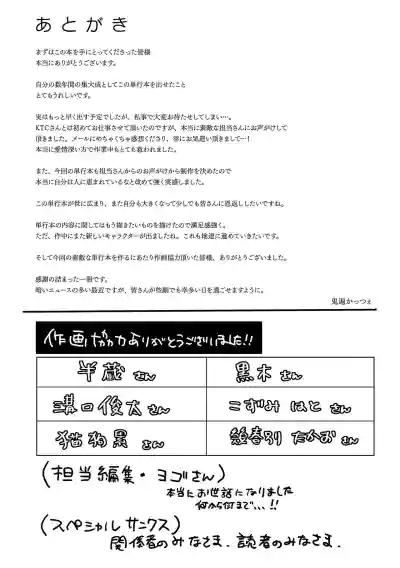 あとがき
まずはこの本を手にとってくださった皆様
本当にありがとうございます。
自分の数年間の集大成としてこの単行本を出せたこと
とてもうれしいです。
実はもっと早く出す予定でしたが、私事で大変お待たせしてしまい…。
KTCさんとは初めてお仕事させて頂いたのですが、本当に素敵な担当さんにお声がけして
頂きました。メールにめちゃくちゃ感想くださり、常にお気遣い頂きまして…！
本当に愛情深い方で作業中もとても救われました。
また、今回の単行本も担当さんからのお声がけから制作を決めたので
本当に自分は人に恵まれているなと改めて強く実感しました。
この単行本が世に広まり、また自分も大きくなって少しでも皆さんに恩返ししたいですね。
単行本の内容に関してはもう描きたいものを描けたので満足感強く。
ただ、作中にまた新しいキャラクターが出ましたね。これも地道に進めていきたいです。
そして今回の素敵な単行本を作るにあたり作画協力頂いた皆様、ありがとうございました。
感謝の詰まった一冊です。
暗いニュースの多い最近ですが、皆さんが些細でも幸多い日を過ごせますように。
鬼遍かっつぇ
作画協力ありがとうございました!!
半蔵さん
黒木さん
溝口俊太さん
こずみはとさん
猫狗黒さん
たかおさん
(担当編集・ヨゴさん)
本当にお世話になりました
何から何まで...!!
(スペシャルサンクス)
関係者のみなさま、読者のみなさま